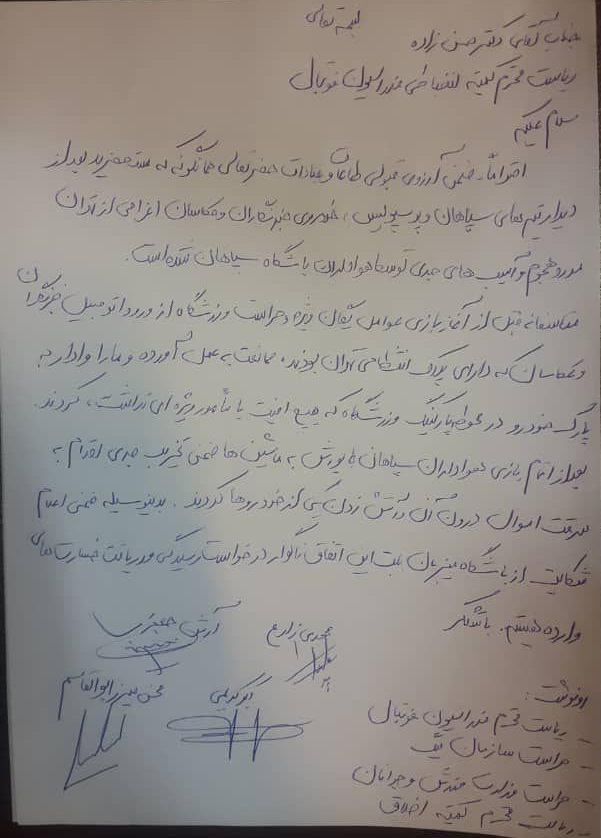 بسمه تعالی
جناب آقای دکتر حسن زاده
ریاست محترم کمیته انضباطی فدراسیون فوتبال
سلام علیکم
احتراماً، ضمن آرزوی قبولی طاعات و عبادات حضرتعالی همانگونه که مستحضرید بعد از
دیدار تیم های سپاهان و پرسپولیس، خودروی خبرنگاران و عکاسان اعزامی از تهران
مورد هجوم و آسیب های جدی توسط هواداران باشگاه سپاهان شده است.
متاسفانه قبل از آغاز بازی عوامل یگان ویژه و حراست ورزشگاه از ورود اتومبیل خبرنگاران
و عکاسان که دارای پلاک انتظامی تهران بودند، ممانعت به عمل آورده و ما را وادار به
پارک خودرو در محوطه پارکینگ ورزشگاه که هیچ امنیت یا مأمور ویژه ای نداشت، کردند.
بعد از اتمام بازی هواداران سپاهان با یورش به ماشین ها ضمن تخریب جدی اقدام به
سرقت اموال درون آن و آتش زدن خودروها کردند. بدینوسیله ضمن اعلام
شکایت از باشگاه میزبان بابت این اتفاق ناگوار درخواست رسیدگی و دریافت خسارت های
وارده هستیم. باتشکر
مهدی زارع
آرش
اکبر کرمی
محسن میرزا ابوالقاسم
رونوشت:
- ریاست محترم فدراسیون فوتبال
- حراست سازمان لیگ
- حراست وزارت ورزش و جوانان
- ریاست محترم کمیته اخلاق